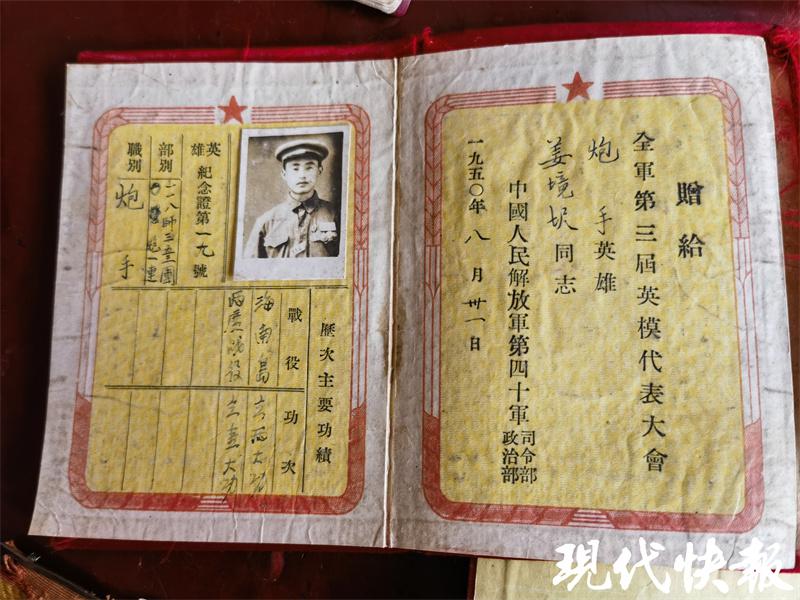 贈給
全軍第三屆英模代表大會
炮手英雄
姜境同志
中國人民解放軍第四十軍司令部政治部
一九五〇年八月卅一日
英雄紀念證第一九號
部別 一一八師三團
炮一連
職別 炮手
歷次主要功績
戰役 功次
海南島 大功
兩廣戰役 立壹大功
现代快報